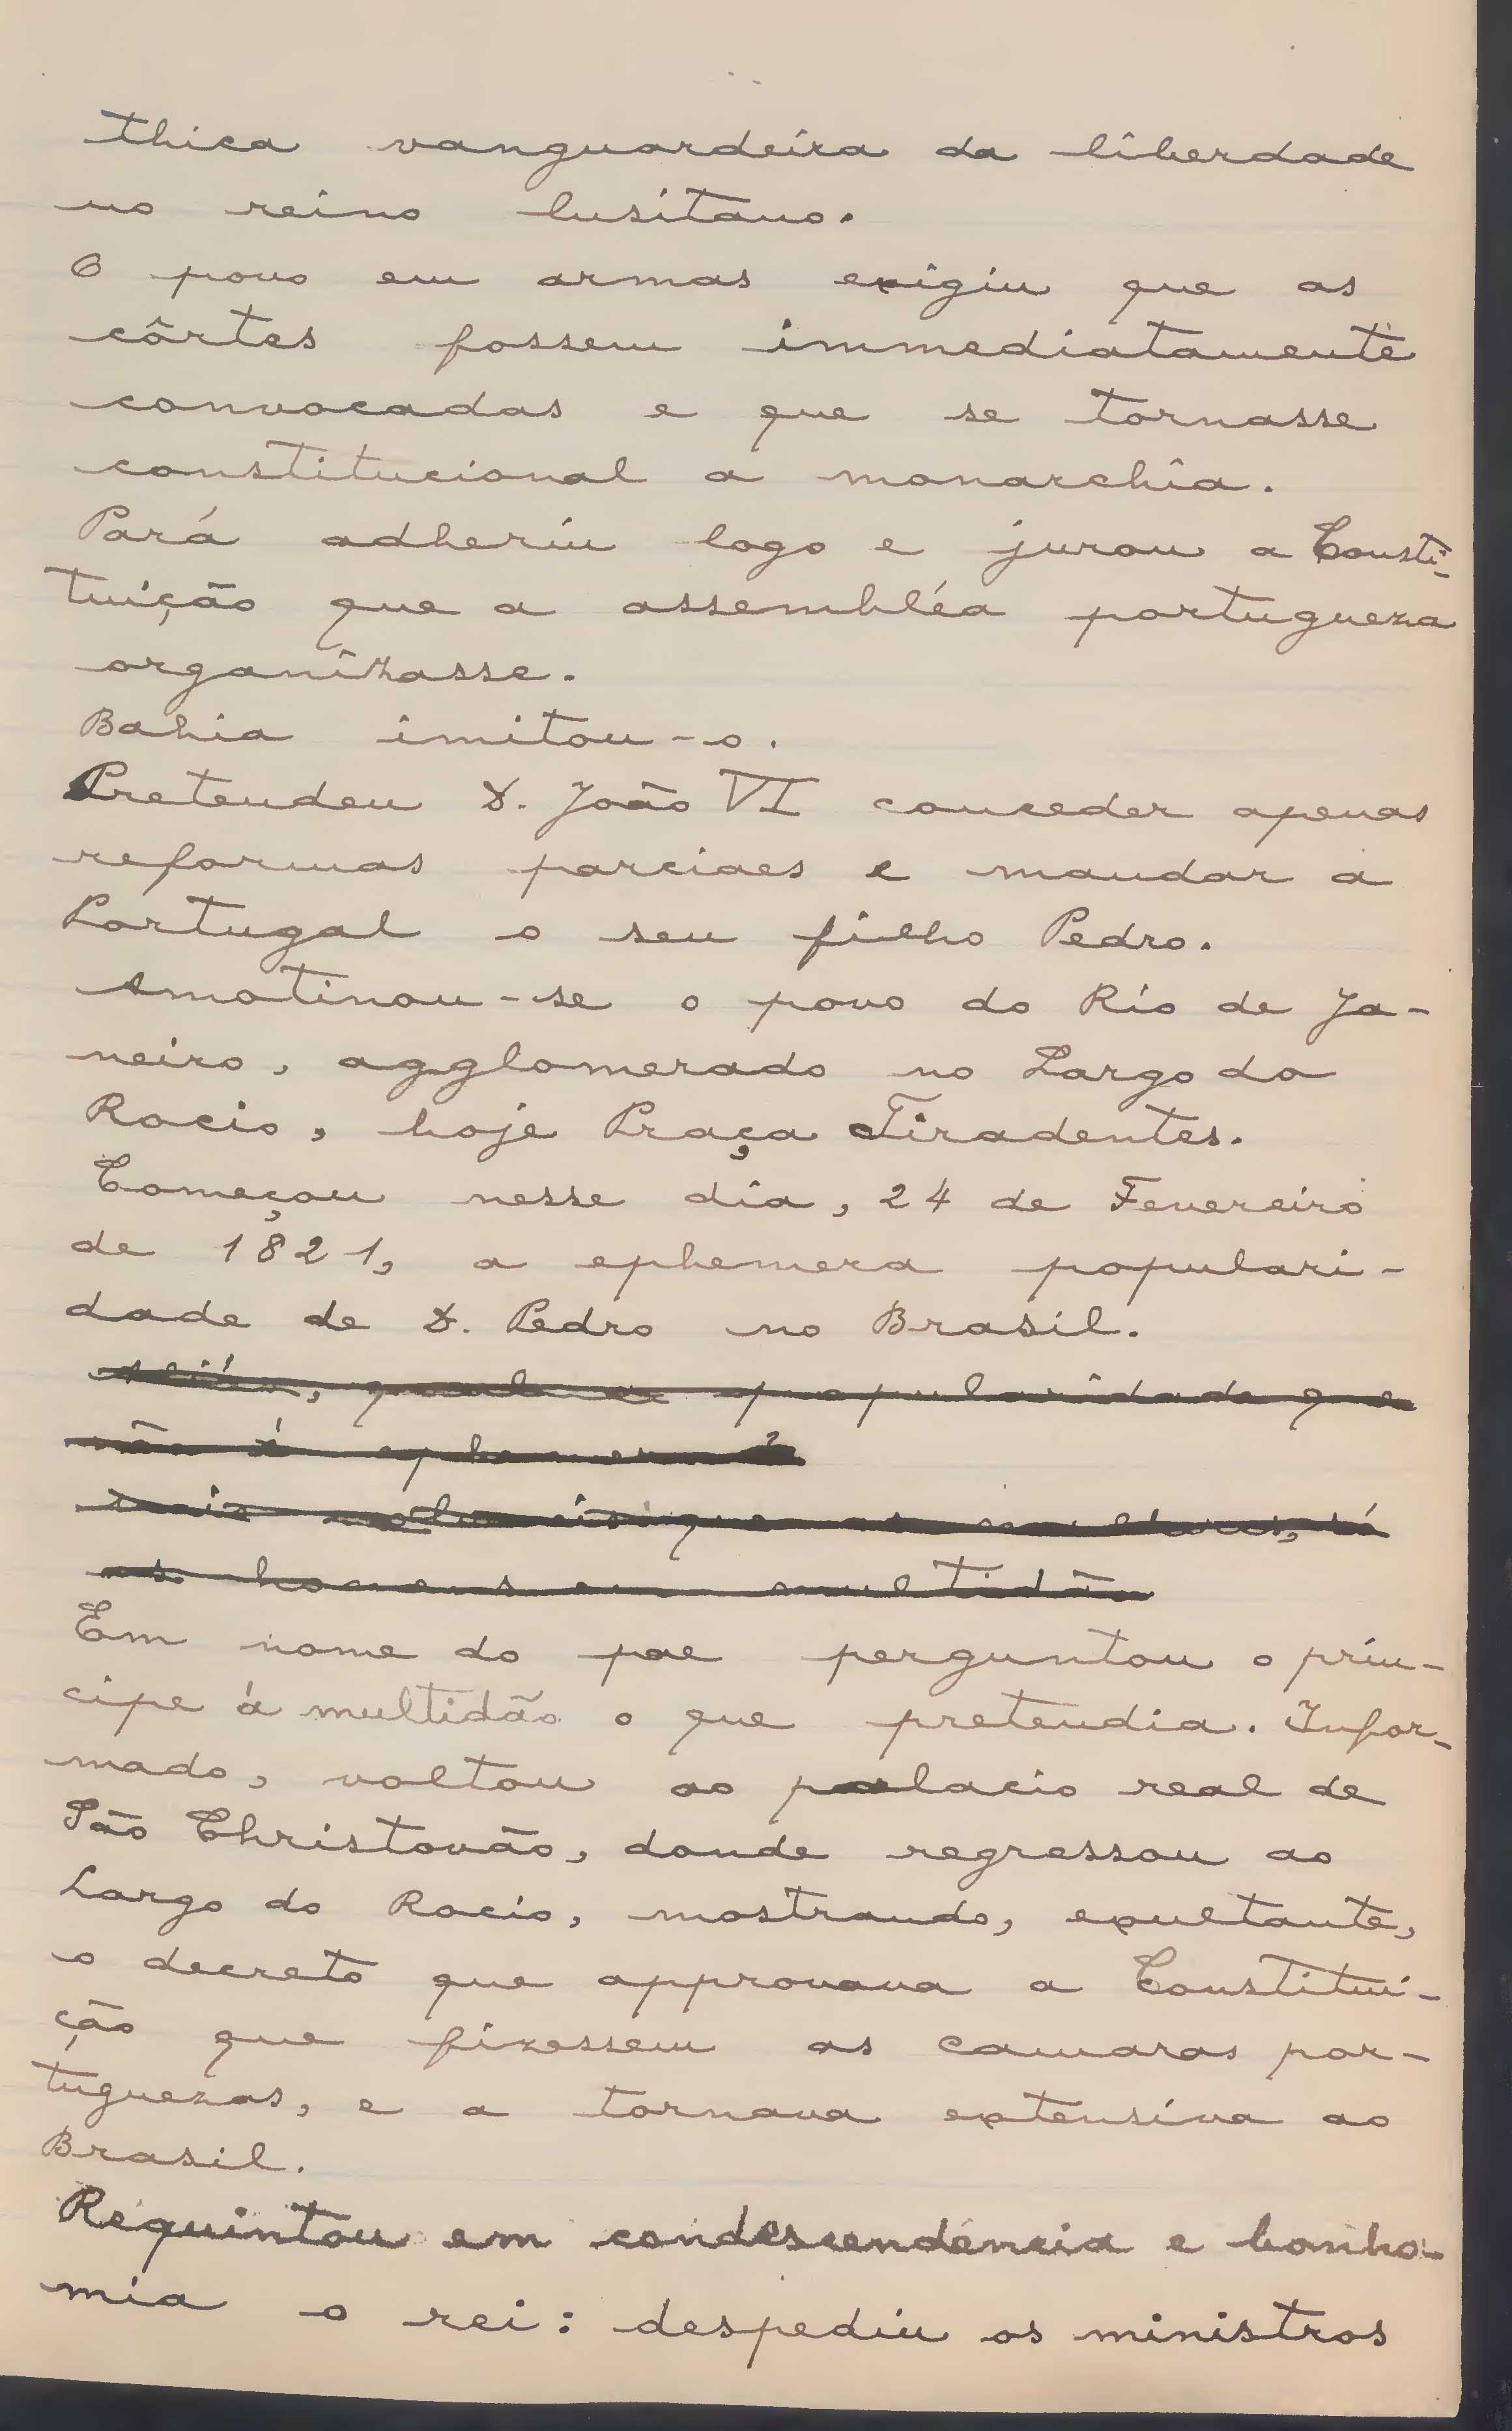 thica vanguardeira da liberdade
no reino lusitano.
O povo em armas exigiu que as
côrtes fossem immediatamente
convocadas e que se tornasse
constitucional a monarchia.
Pará adheriu logo e jurou a Consti-
tuição que a assembléa portugueza
organizasse.
Bahia imitou-o.
Pretendeu D. João VI conceder apenas
reformas parciaes e mandar a
Portugal o seu filho Pedro.
Amotinou-se o povo do Rio de Ja-
neiro, agglomerado no Largo do
Rocio, hoje Praça Tiradentes.
Começou nesse dia, 24 de Fevereiro
de 1821, a ephemera populari-
dade de D. Pedro no Brasil.
Aliás, qual a popularidade que
não é ephemera?
Mais que as mulheres, só
os homens em multidão
Em nome do pae perguntou o prin-
cipe á multidão o que pretendia. Infor-
mado, voltou ao palacio real de
São Christovão, donde regressou ao
Largo do Rocio, mostrando, exultante,
o decreto que approvava a Constitui-
ção que fizessem as camaras por-
tuguezas, e a tornava extensiva ao
Brasil.
Requintou em condescendencia e bonho-
mia o rei: despediu os ministros